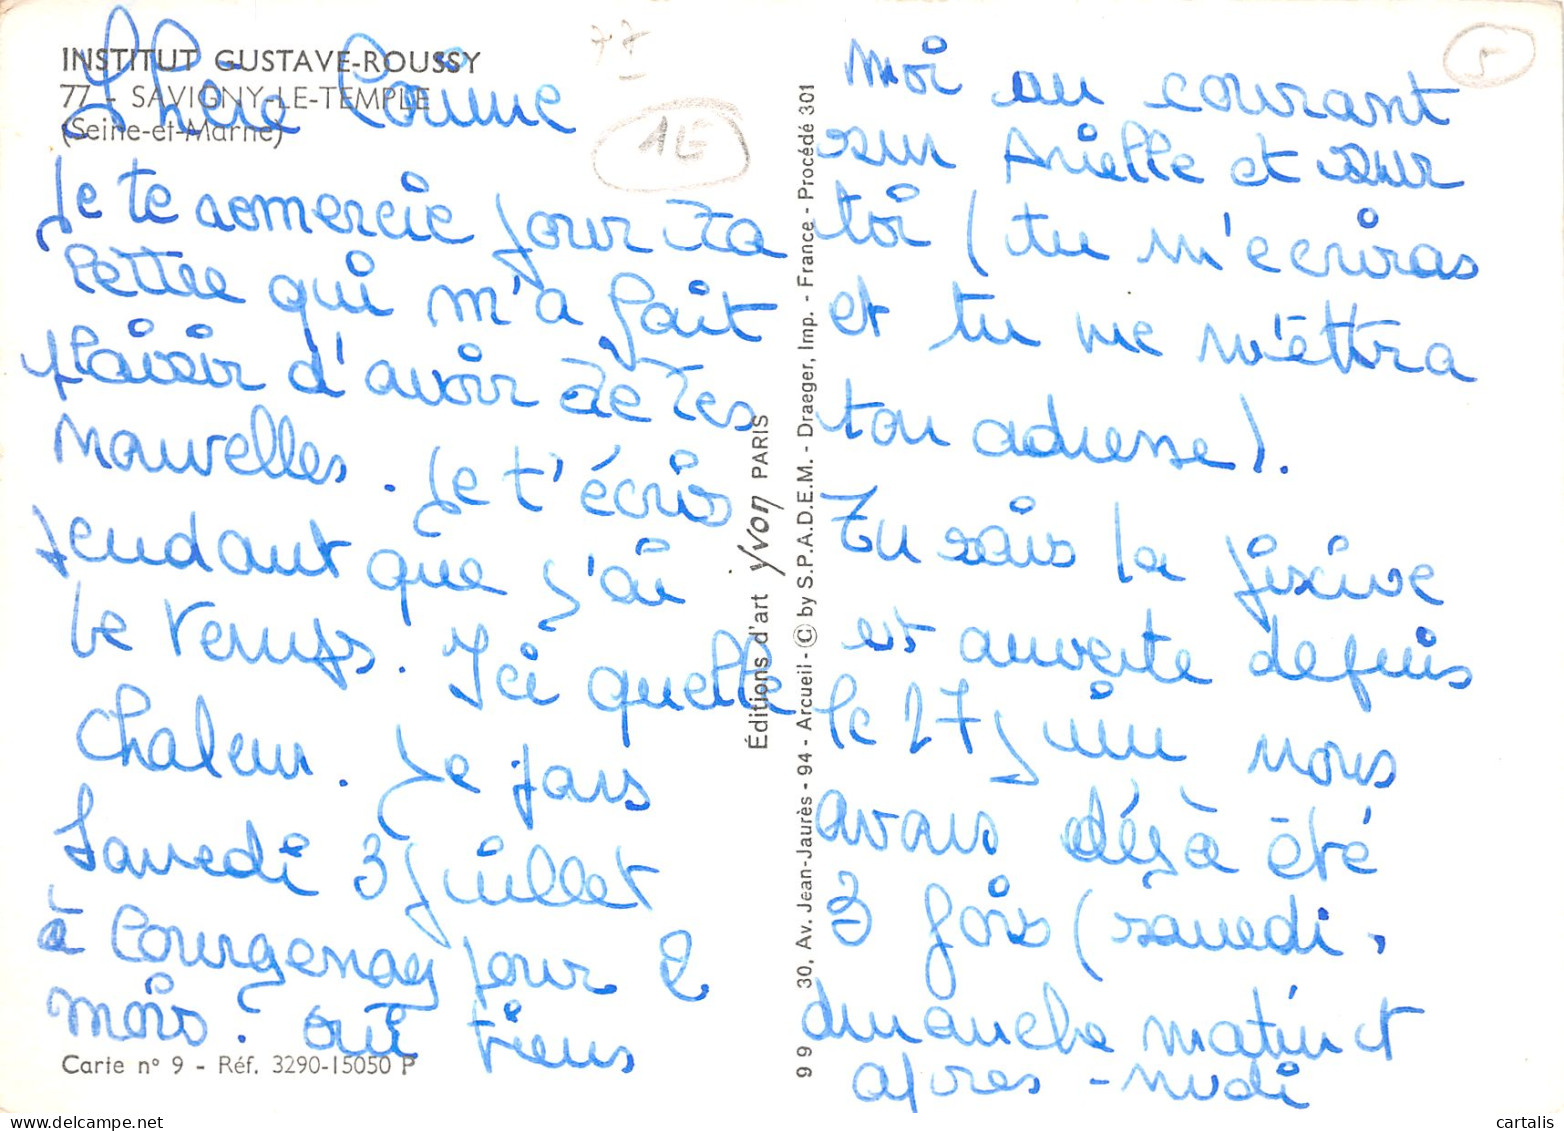 INSTITUT GUSTAVE-ROUSSY
77 - SAVIGNY-LE-TEMPLE
(Seine-et-Marne)
Chère Corinne
Je te remercie pour ta
lettre qui m'a fait
plaisir d'avoir de tes
nouvelles. Je t'écris
pendant que j'ai
le temps. Ici quelle
chaleur. Je pars
samedi 3 juillet
à Courgenay pour 2
mois. oui tiens
Carte n° 9 - Réf. 3290-15050 P
77
1E
Éditions d'art Yvon PARIS
9 9 30, Av. Jean-Jaurès - 94 - Arcueil - © by S.P.A.D.E.M. - Draeger, Imp. - France - Procédé 301
5
moi au courant
sur Arielle et sur
toi (tu m'écriras
et tu me m'éttra
ton adresse).
Tu sais la piscive
est ouverte depuis
le 27 juin nous
avons déjà été
3 fois (samedi,
dimanche matin et
apres-midi
cartalis